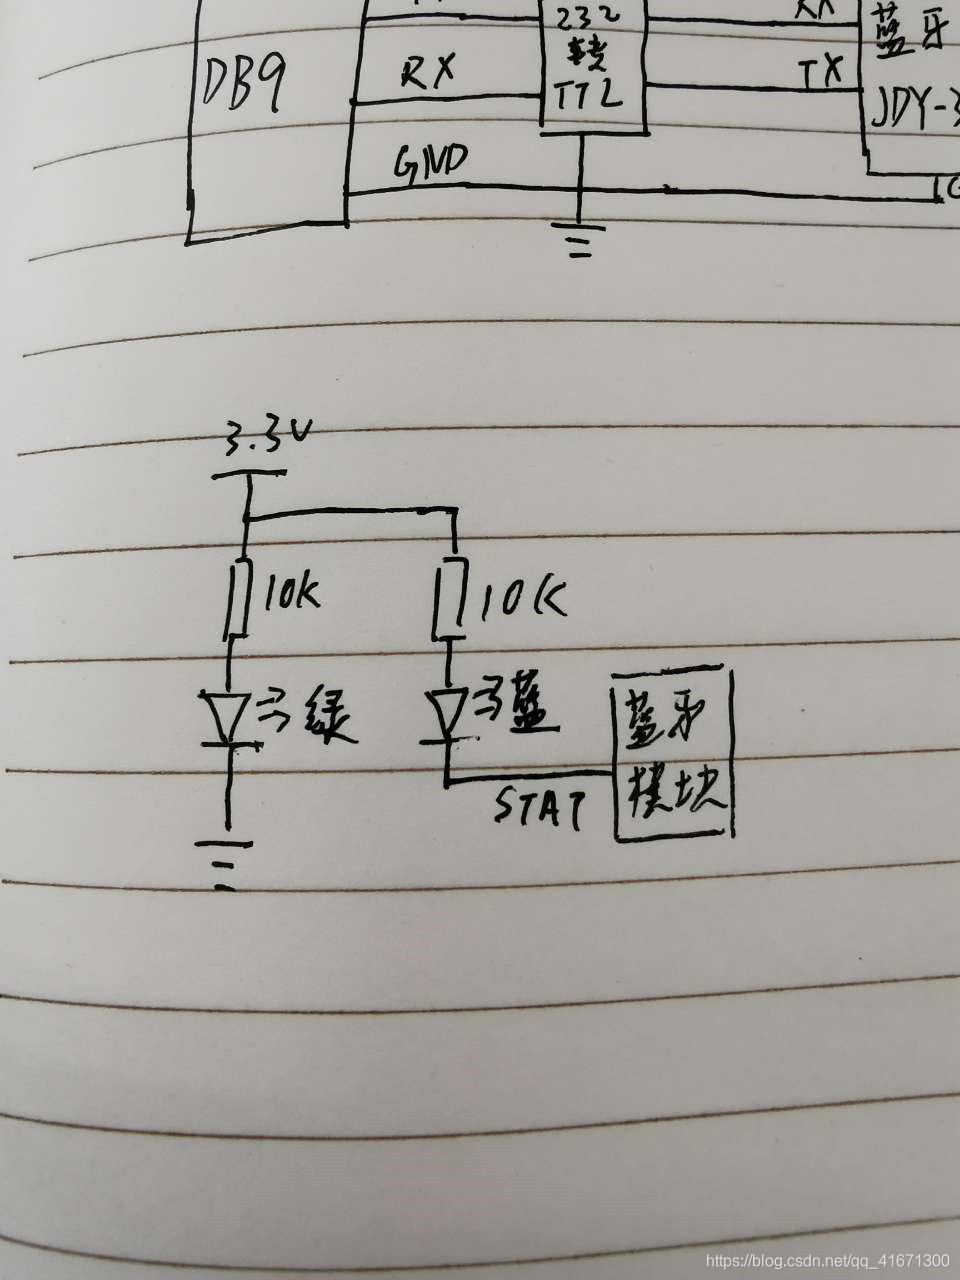 232
RX
蓝牙
转
DB9
RX
TTL
TX
JDY-3
GND
3.3V
10K
10K
绿
蓝
蓝牙
模块
STAT
https://blog.csdn.net/qq_41671300